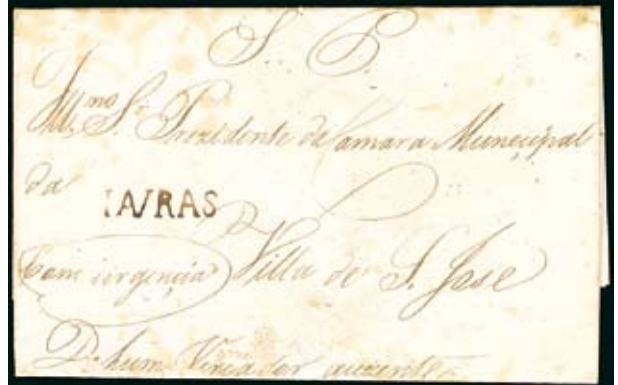 S. P.
Illmo. Sr. Prezidente da Camara Municipal
da
LAVRAS
Com urgencia
Villa de S. Jose
D. hum Veriador auzente